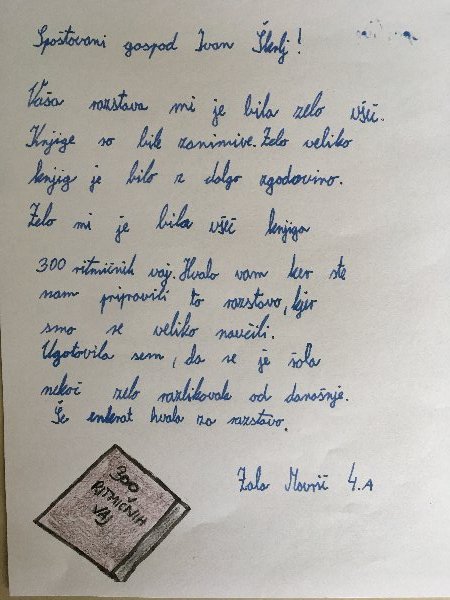 Spoštovani gospod Ivan Škrlj!
Vaša razstava mi je bila zelo všč.
Knjige so bile zanimive. Zelo veliko
knjig je bilo z dolgo zgodovino.
Zelo mi je bila všč knjiga
300 ritmičnih vaj. Hvala vam ker ste
nam pripravili to razstavo, kjer
smo se veliko naučili.
Ugotovila sem, da se je šola
nekoč zelo razlikovala od današnje.
Še enkrat hvala za razstavo.
Zala 4.A
300
RITMIČNIH
VAJ